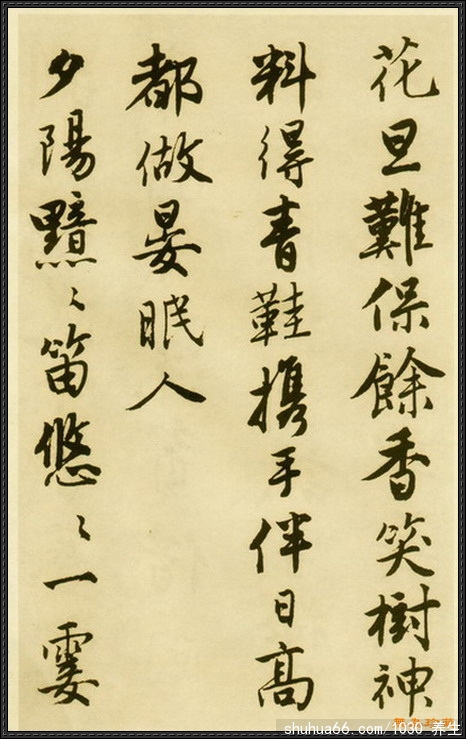 花旦難保餘香笑樹神
料得青鞋携手伴日高
都做晏眠人
夕陽黯〻笛悠〻一霎
shuhua66.com /1030 养生